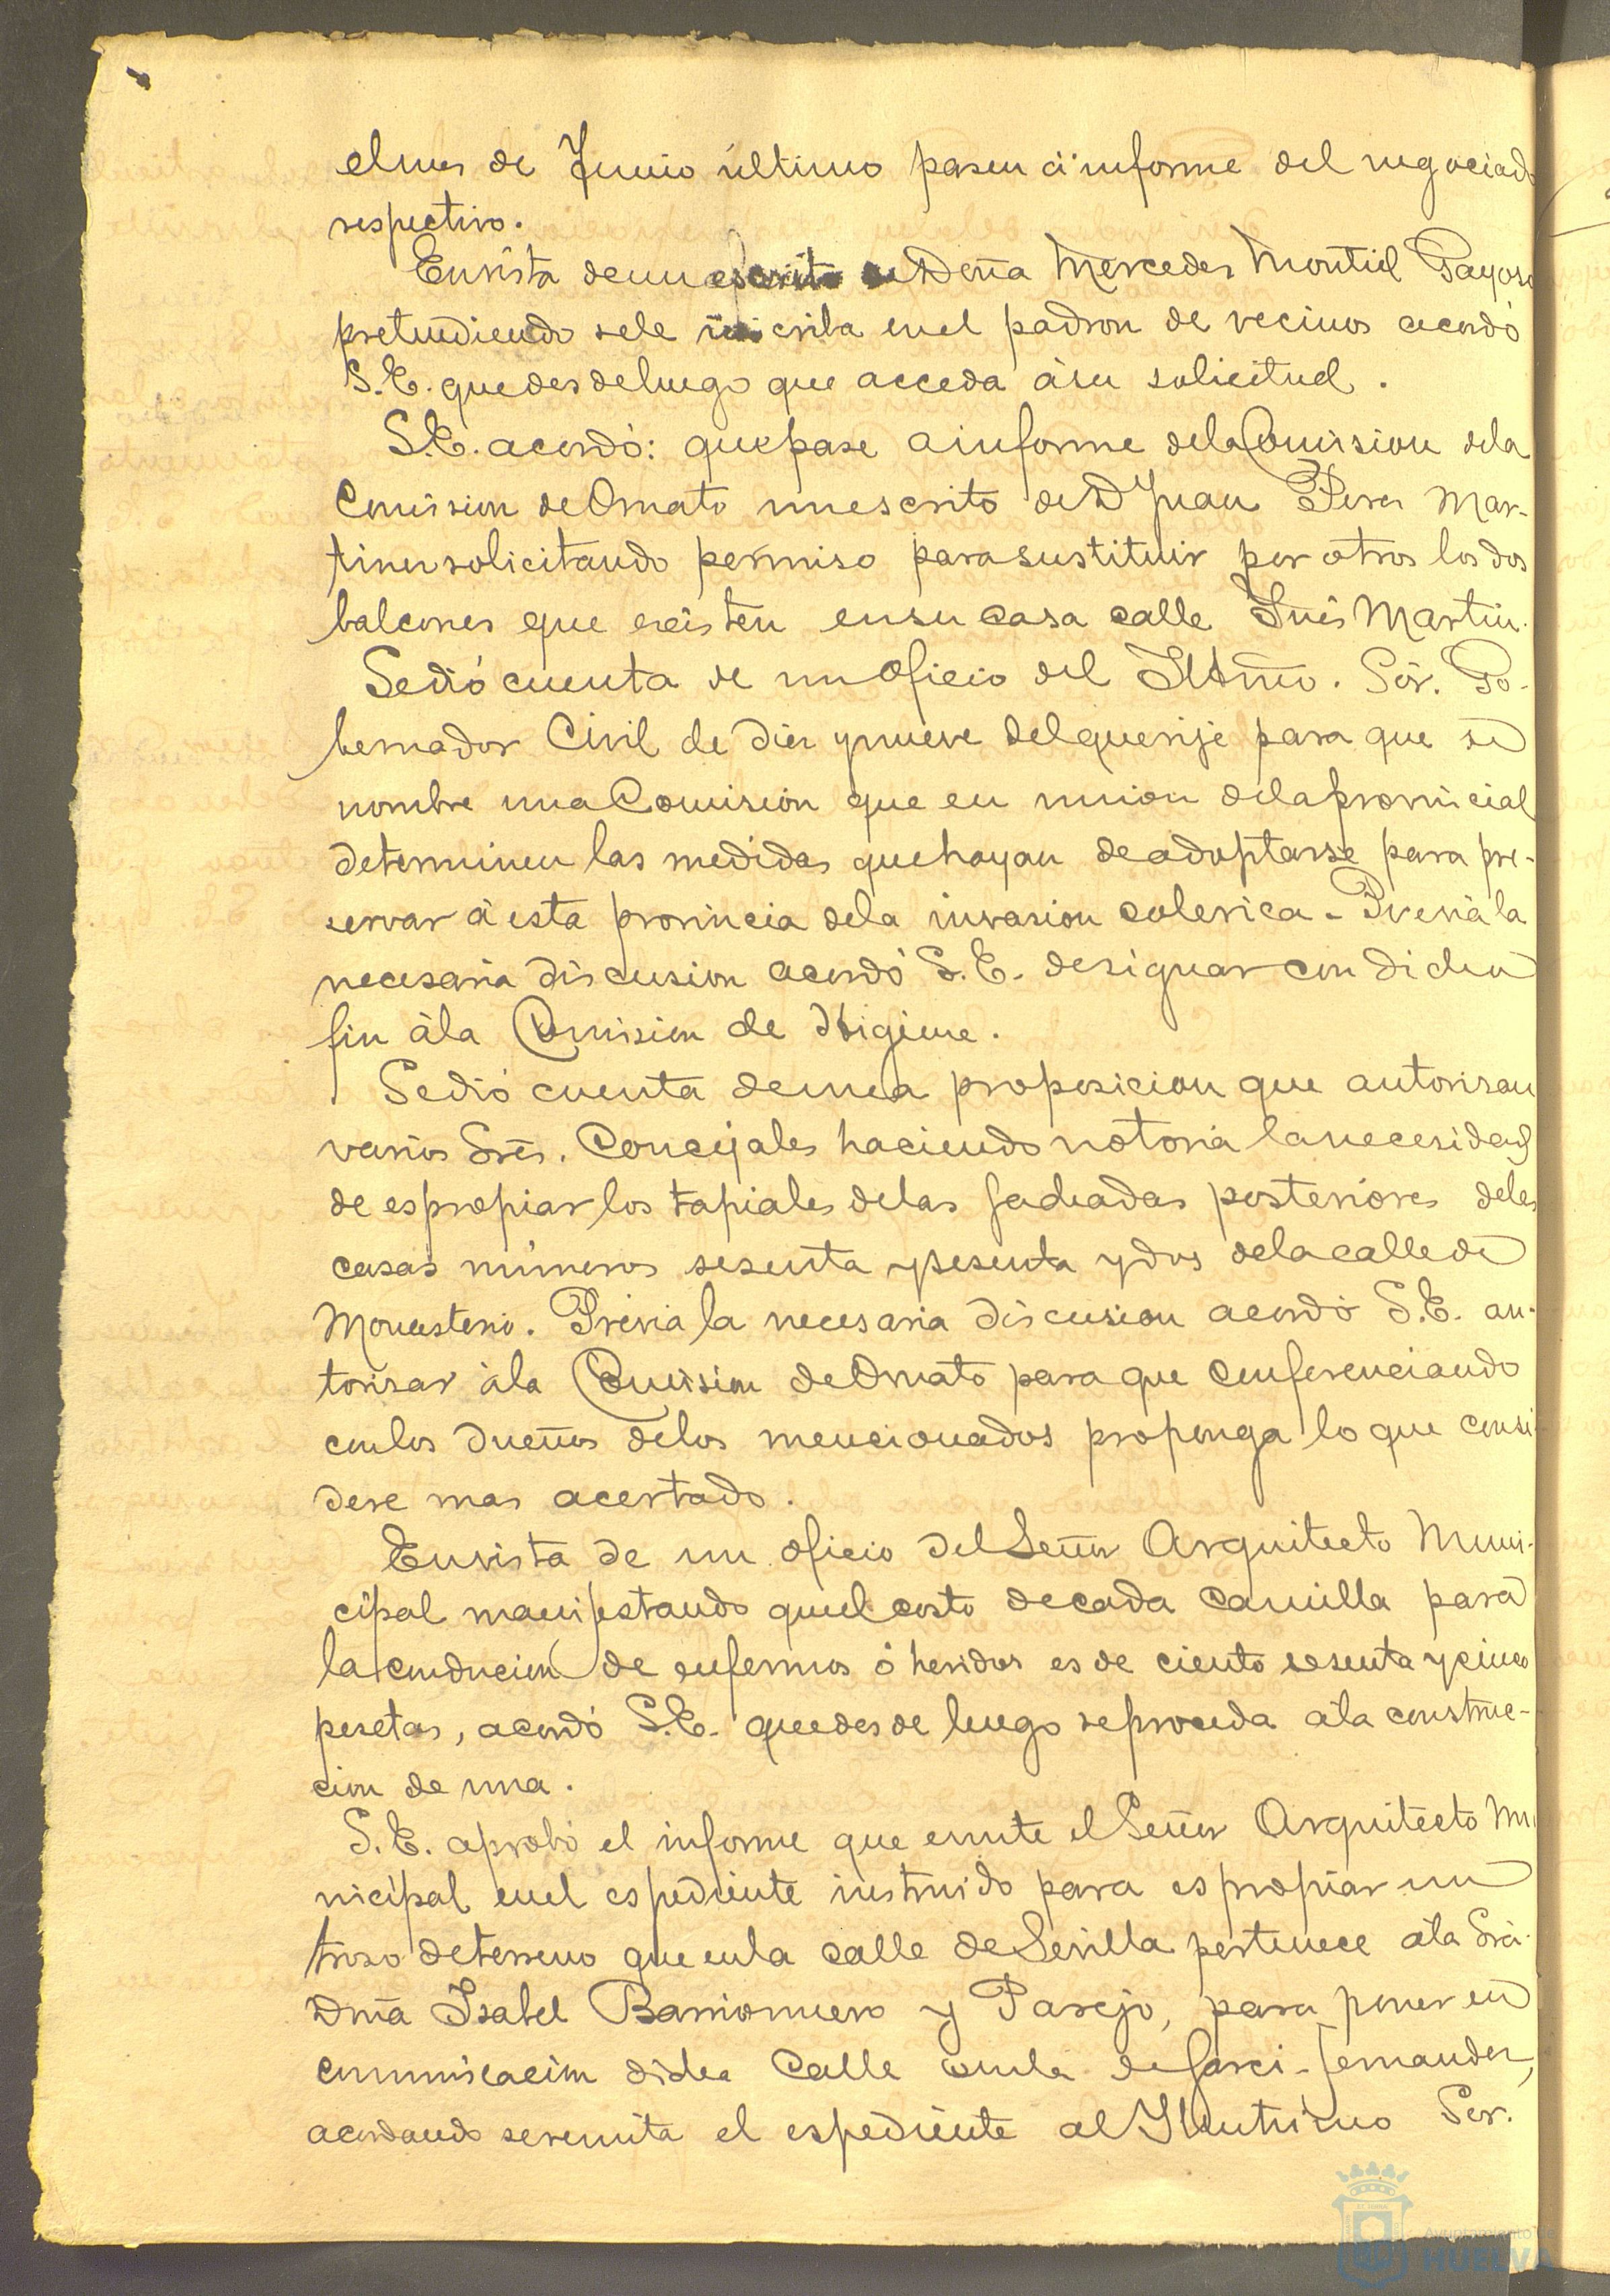 el mes de Junio último pasen á informe del negociado
respectivo.
En vista de un escrito de Doña Mercedes Montiel Payose
pretendiendo se le inscriba en el padron de vecinos acordó
S.E. que desde luego que acceda á su solicitud.
S.E. acordó: que pase a informe de la Comision de la
Comision de Ornato un escrito de D Juan Perez Mar-
tinez solicitando permiso para sustituir por otros los dos
balcones que existen en su casa calle Inés Martin.
Se dió cuenta de un oficio del Iltmo. Sór. Go-
bernador Civil de diez y nueve del que rije para que se
nombre una Comision que en union de la provincial
determinen las medidas que hayan de adoptarse para pre-
servar á esta provincia de la invasion colerica - Previa la
necesaria discusion acordó S.E. designar con dicho
fin á la Comision de Higiene.
Se dió cuenta de una proposicion que autorizan
varios Sres. Concejales haciendo notoria la necesidad
de espropiar los tapiales de las fachadas posteriores de las
casas números sesenta y sesenta y dos de la calle de
Monasterio. Previa la necesaria discusion acordó S.E. au-
torizar á la Comision de Ornato para que conferenciando
con los dueños de los mencionados proponga lo que consi-
dere mas acertado.
En vista de un oficio del Señor Arquitecto Muni-
cipal manifestando que el costo de cada camilla para
la conducion de enfermos ó heridos es de ciento sesenta y cinco
pesetas, acordó S.E. que desde luego se proceda á la construc-
cion de una.
S.E. aprobó el informe que emite el Señor Arquitecto Mu
nicipal en el espediente instruido para espropiar un
trozo de terreno que en la calle de Sevilla pertenece á la Sra.
Dña Isabel Barrionuevo y Parejo, para poner en
comunicacion dicha Calle con la de Garci-fernandez,
acordando se remita el espediente al Ilustrísimo Sor.
Ayuntamiento de
HUELVA